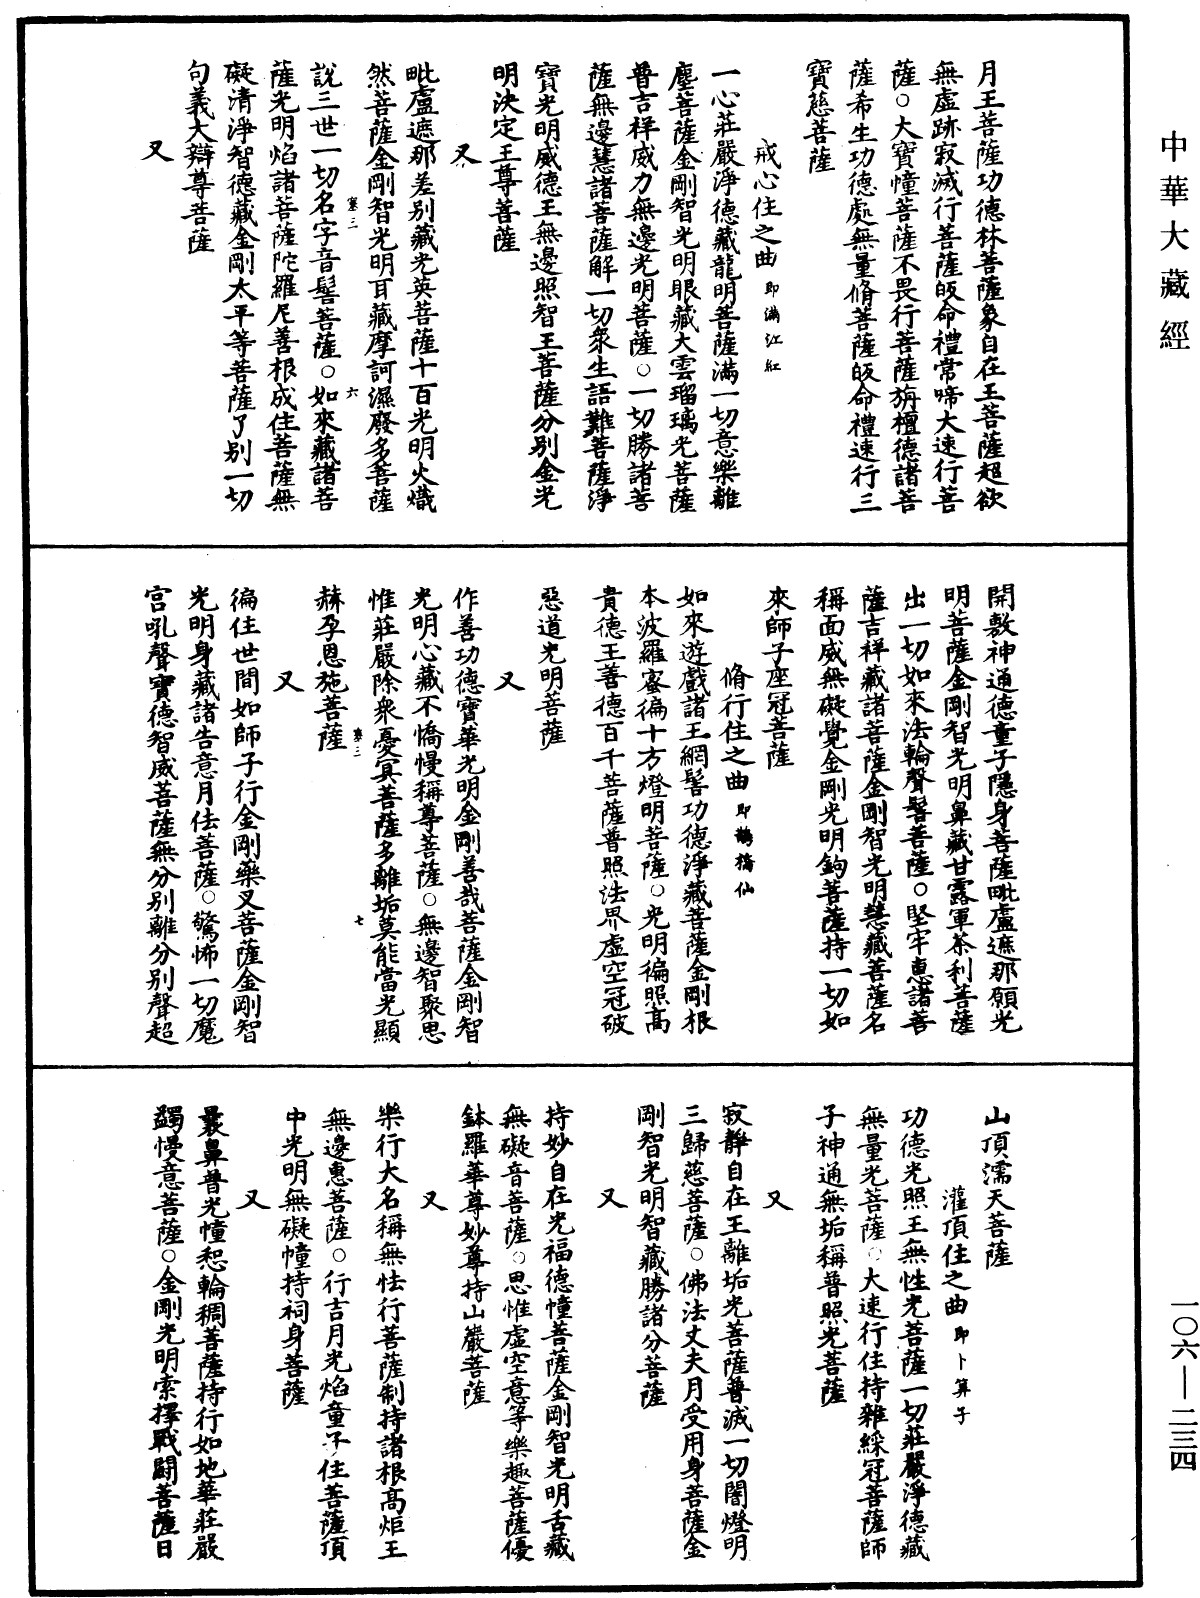 中華大藏經
月王菩薩功德林菩薩象自在王菩薩超欲
無虛跡寂滅行菩薩皈命禮常啼大速行菩
薩○大寶幢菩薩不畏行菩薩旃檀德諸菩
薩希生功德處無量脩菩薩皈命禮速行三
寶慈菩薩
戒心住之曲 即滿江紅
一心莊嚴淨德藏龍明菩薩滿一切意樂離
塵菩薩金剛智光明眼藏大雲瑠璃光菩薩
普吉祥威力無邊光明菩薩○一切勝諸菩
薩無邊慧諸菩薩解一切衆生語難菩薩淨
寶光明威德王無邊照智王菩薩分別金光
明決定王尊菩薩
又
毗盧遮那差別藏光英菩薩十百光明火熾
然菩薩金剛智光明耳藏摩訶濕廢多菩薩
塞三 六
說三世一切名字音髻菩薩○如來藏諸菩
薩光明焰諸菩薩陀羅尼善根成住菩薩無
礙清淨智德藏金剛太平等菩薩了別一切
句義大辯尊菩薩
又
開敷神通德童子隱身菩薩毗盧遮那願光
明菩薩金剛智光明鼻藏甘露軍荼利菩薩
出一切如來法輪聲髻菩薩○堅牢惠諸菩
薩吉祥藏諸菩薩金剛智光明慧藏菩薩名
稱面威無礙覺金剛光明鉤菩薩持一切如
來師子座冠菩薩
脩行住之曲 即鵲橋仙
如來遊戲諸王網髻功德淨藏菩薩金剛根
本波羅蜜徧十方燈明菩薩○光明徧照高
貴德王善德百千菩薩普照法界虛空冠破
惡道光明菩薩
又
作善功德寶華光明金剛善哉菩薩金剛智
光明心藏不憍慢稱尊菩薩○無邊智聚思
惟莊嚴除衆憂冥菩薩多離垢莫能當光顯
塞三 七
赫孕恩施菩薩
又
徧住世間如師子行金剛藥叉菩薩金剛智
光明身藏諸告意月佉菩薩○驚怖一切魔
宮吼聲寶德智威菩薩無分別離分別聲超
山頂濡天菩薩
灌頂住之曲 即卜算子
功德光照王無性光菩薩一切莊嚴淨德藏
無量光菩薩○大速行住持雜綵冠菩薩師
子神通無垢稱普照光菩薩
又
寂靜自在王離垢光菩薩普滅一切闇燈明
三歸慈菩薩○佛法丈夫月受用身菩薩金
剛智光明智藏勝諸分菩薩
又
持妙自在光福德幢菩薩金剛智光明舌藏
無礙音菩薩○思惟虛空意等樂趣菩薩優
鉢羅華尊妙尊持山巖菩薩
又
樂行大名稱無怯行菩薩制持諸根高炬王
無邊惠菩薩○行吉月光焰童子住菩薩頂
中光明無礙幢持祠身菩薩
又
最鼻普光幢恕輪稠菩薩持行如地華莊嚴
蠲慢意菩薩○金剛光明索擇戰闘菩薩日
一〇六—二三四